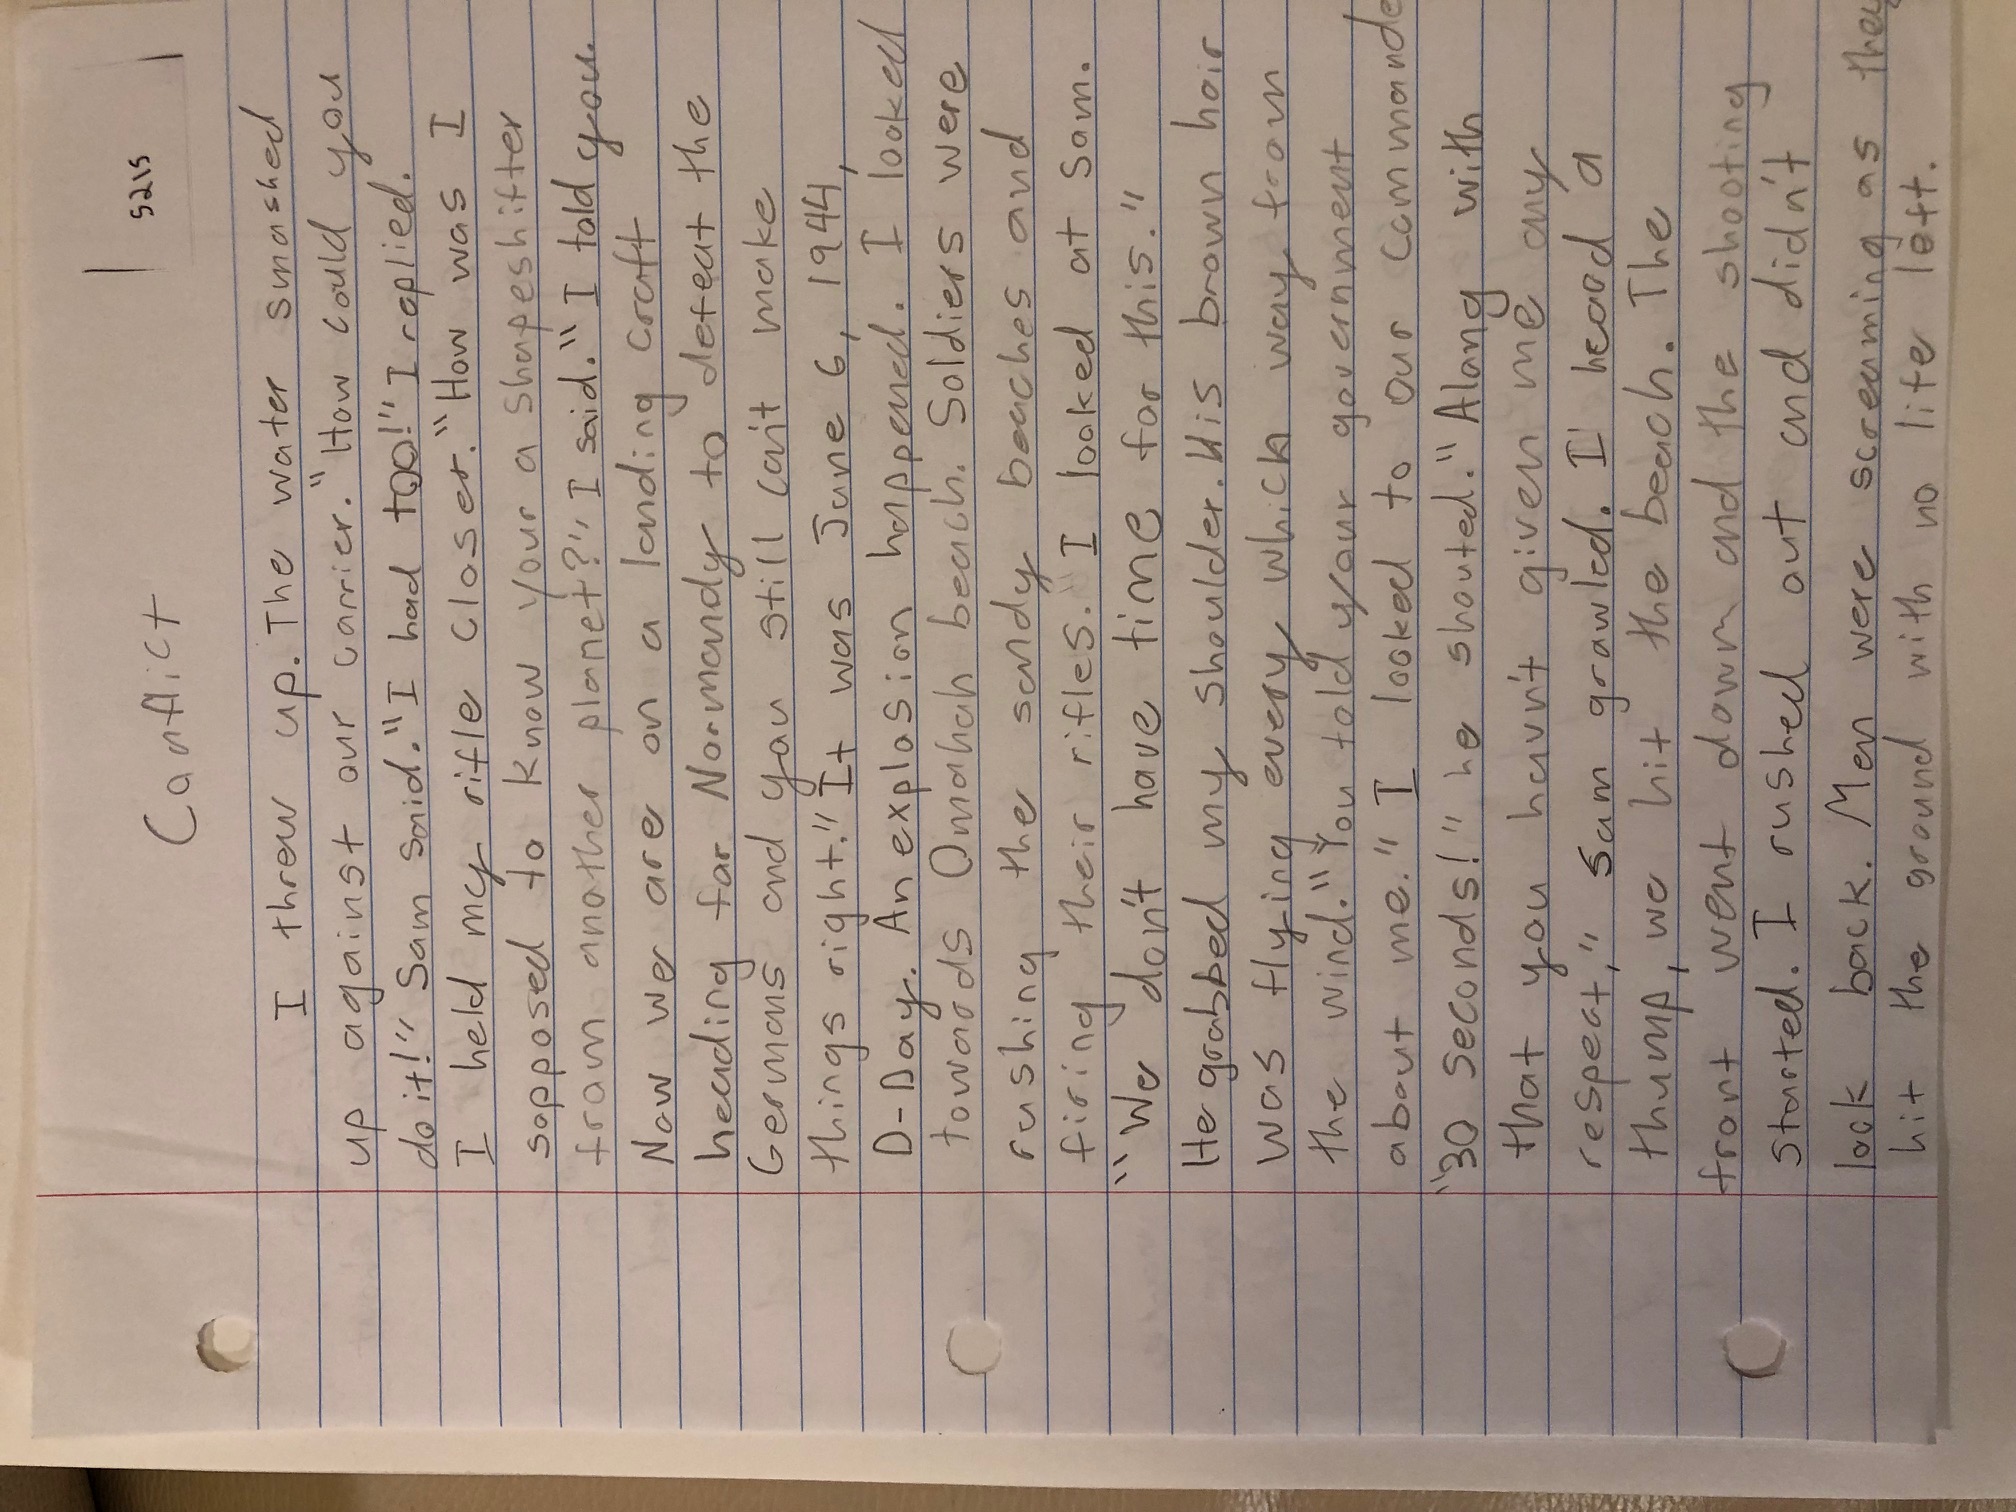 5215
Conflict
I threw up. The water smashed
up against our carrier. "How could you
do it!" Sam said. "I had too!" I replied.
I held my rifle closer. "How was I
sopposed to know your a shapeshifter
from another planet?" I said. "I told you.
Now we are on a landing craft
heading for Normandy to defeat the
Germans and you still can't make
things right." It was June 6, 1944,
D-Day. An explosion happened. I looked
towards Omahah beach. Soldiers were
rushing the sandy beaches and
firing their rifles. I looked at Sam.
"We don't have time for this."
He grabbed my shoulder. His brown hair
was flying every which way from
the wind. "You told your government
about me." I looked to our commande
"30 seconds!" he shouted. "Along with
that you havn't given me any
respect," Sam growled. I heard a
thump, we hit the beach. The
front went down and the shooting
started. I rushed out and didn't
look back. Men were screaming as they
hit the ground with no life left.